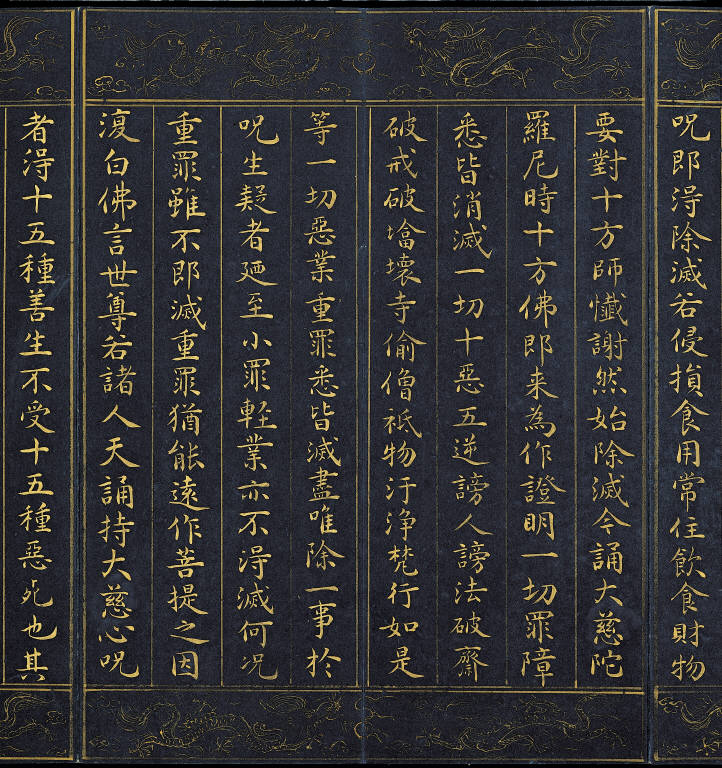 呪即淂除滅若侵損食用常住飲食財物
要對十方師懴謝然始除滅今誦大慈陀
羅尼時十方佛即来為作證明一切罪障
悉皆消滅一切十惡五逆謗人謗法破齋
破戒破墖壊寺偷僧祗物汙浄梵行如是
等一切惡業重罪悉皆滅盡唯除一事於
呪生疑者廼至小罪軽業亦不淂滅何况
重罪雖不即滅重罪猶能遠作菩提之因
澓白佛言世尊若諸人天誦持大慈心呪
者淂十五種善生不受十五種惡死也其